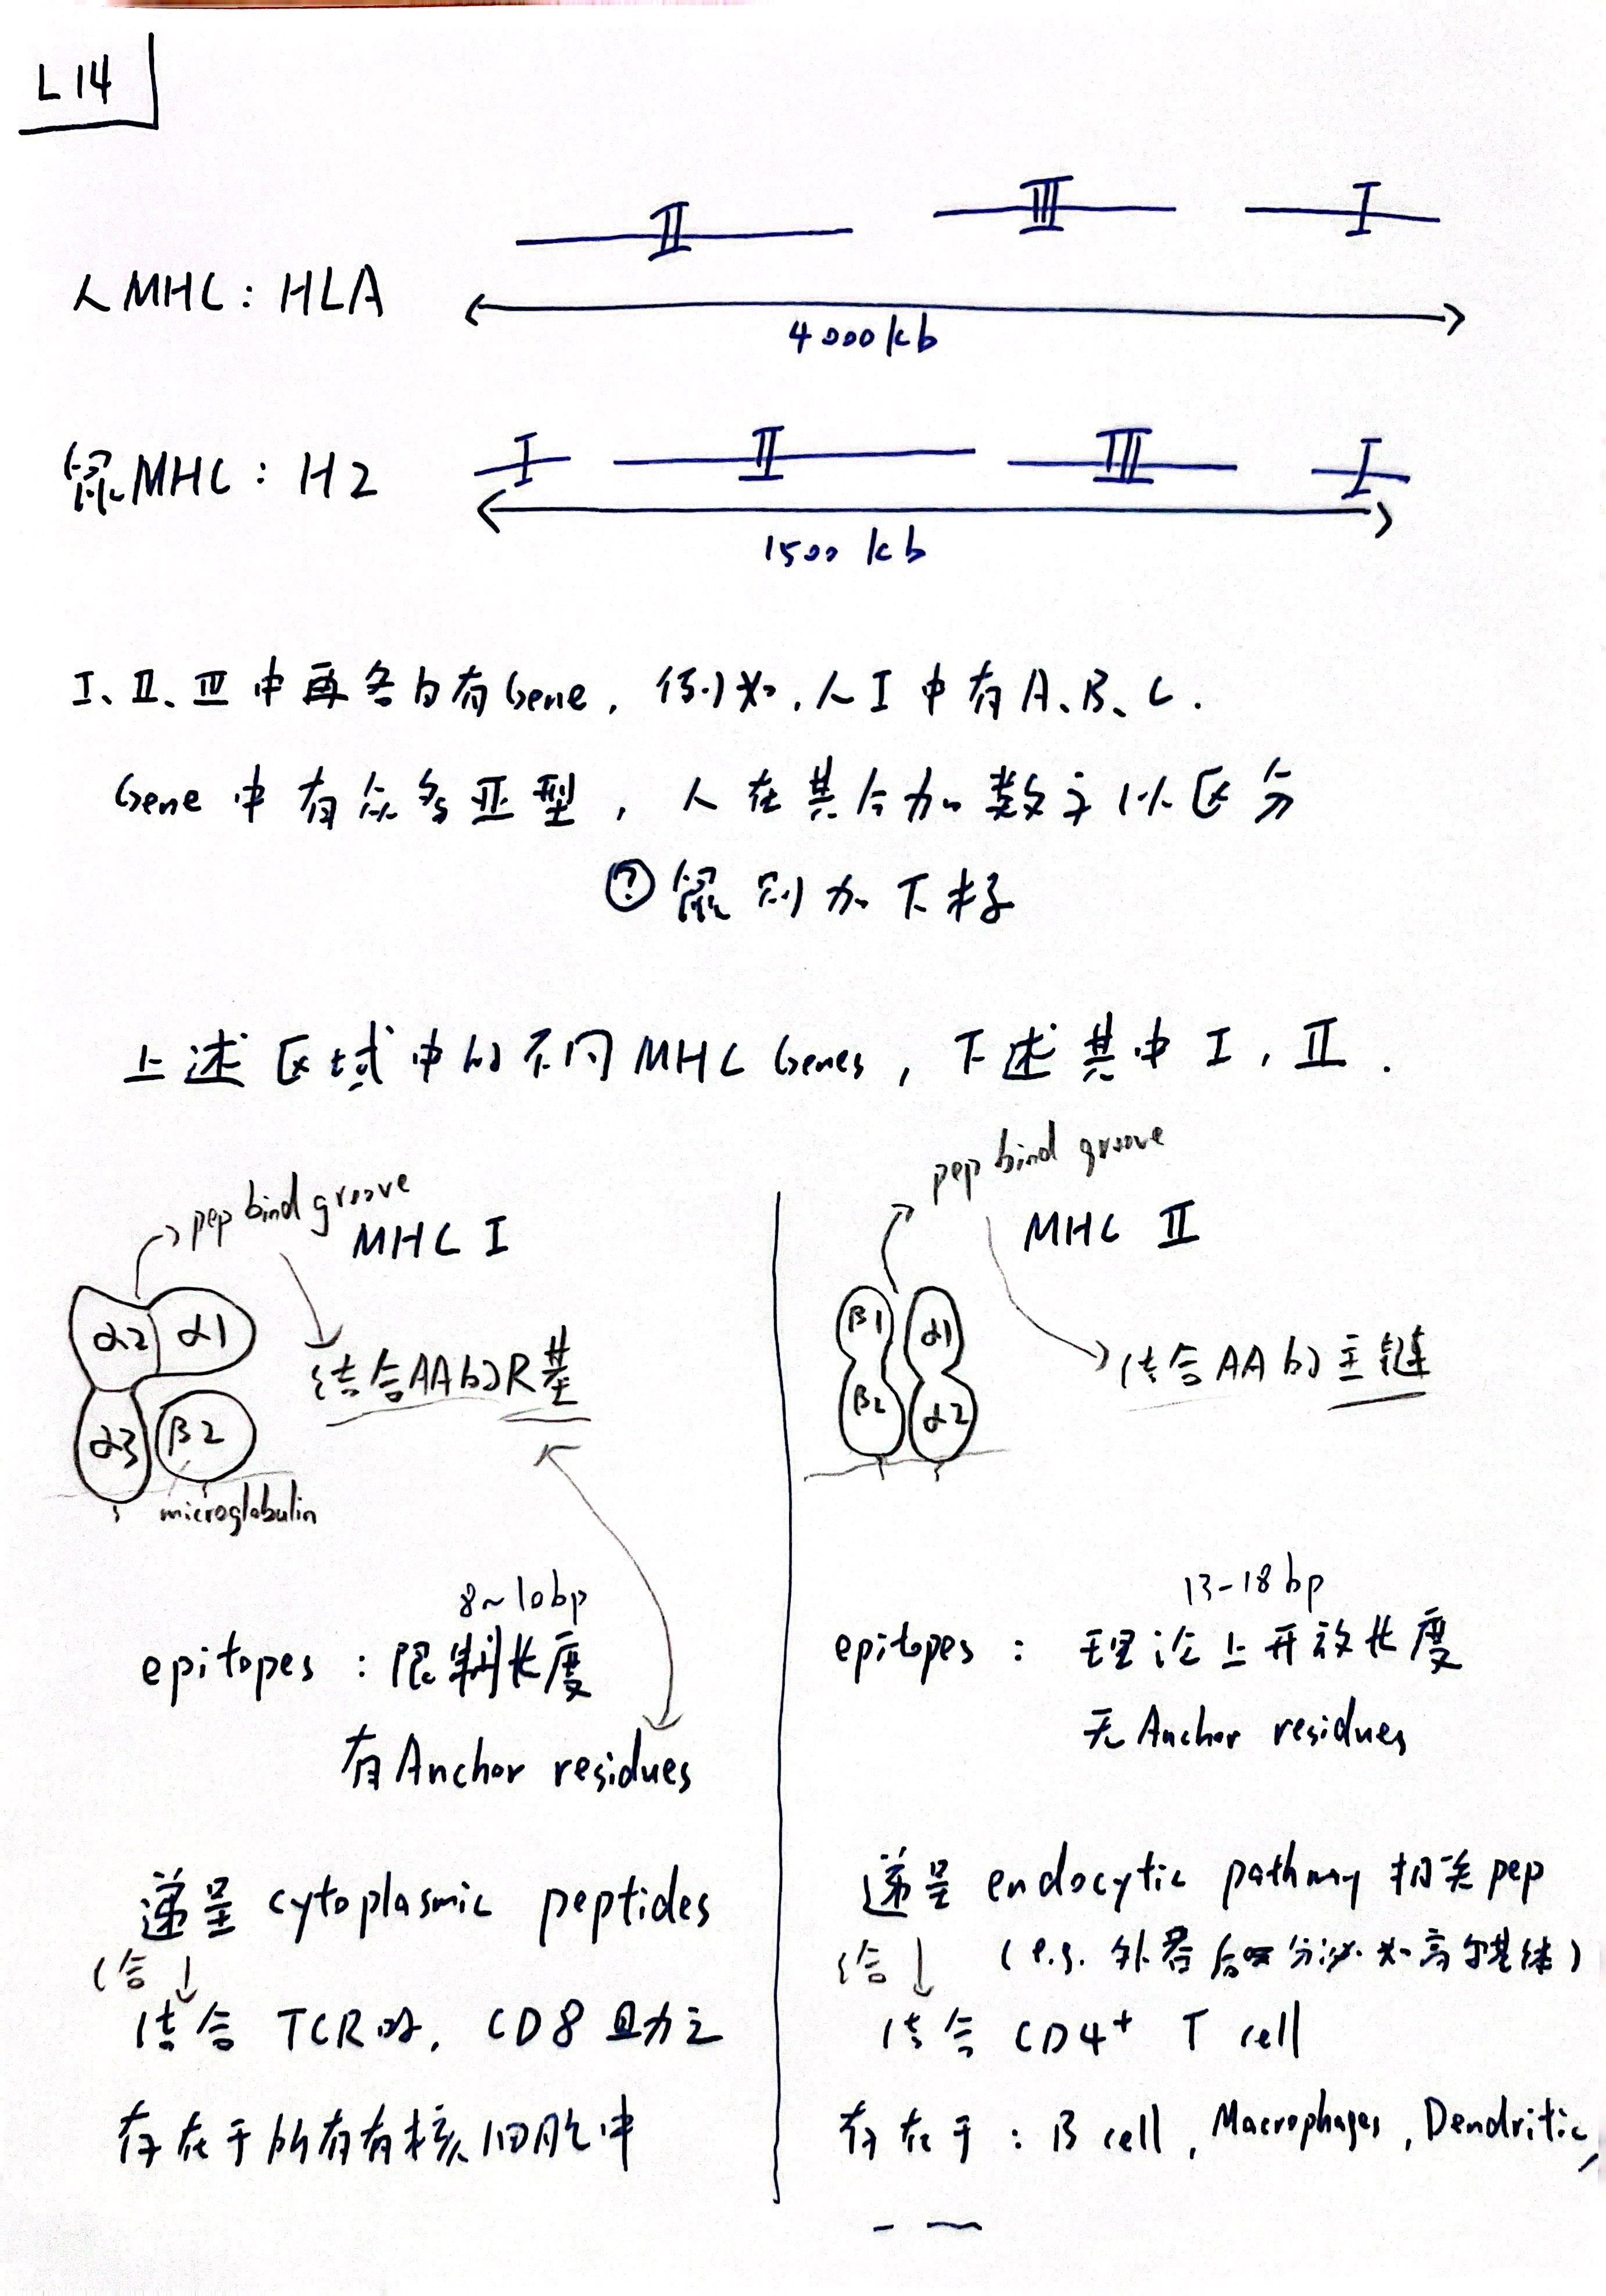 L14
II III I
人MHC: HLA
4000kb
I II III I
鼠MHC: H2
1500 kb
I、II、III 中再各自有Gene, 例如, 人I中有A、B、C.
Gene 中有众多亚型, 人在其后加数字以区分
? 鼠则加下标
上述区域中的不同MHC Genes, 下述其中 I, II.
pep bind groove
MHC I
α2 α1
结合AA的R基
α3 β2
microglobulin
8~10bp
epitopes : 限制长度
有Anchor residues
递呈 cytoplasmic peptides
给↓
结合 TCR时, CD8 助之
存在于所有有核细胞中
pep bind groove
MHC II
β1 α1
结合AA的主链
β2 α2
13-18 bp
epitopes : 理论上开放长度
无Anchor residues
递呈 endocytic pathway 相关pep
给↓ (e.g. 外吞后 分泌 如高尔基体)
结合 CD4+ T cell
存在于: B cell, Macrophages, Dendritic,